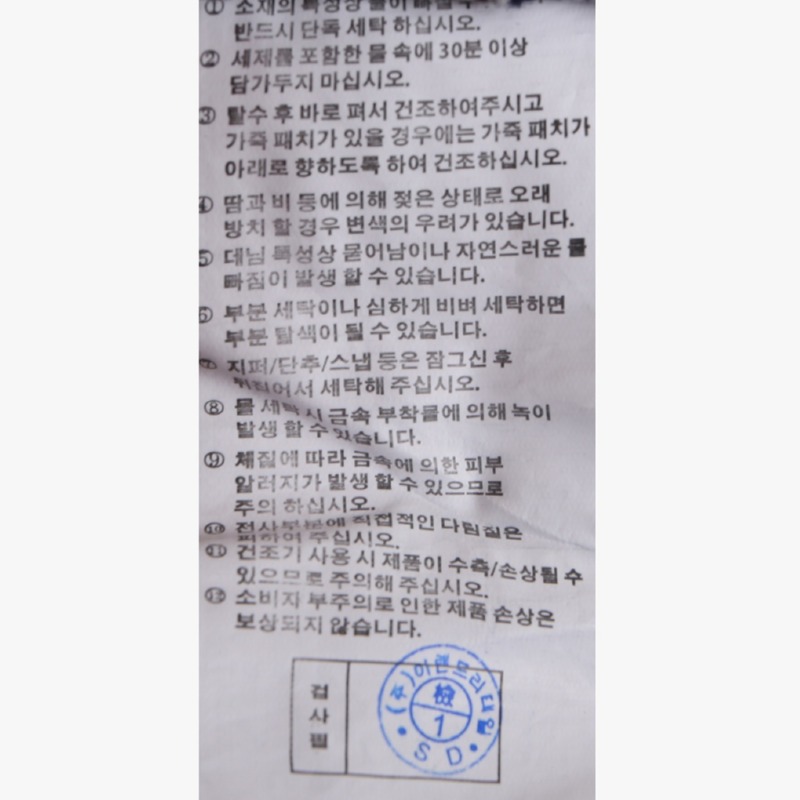 ① 소재의 특성상 물이
반드시 단독 세탁 하십시오.
② 세제를 포함한 물 속에 30분 이상
담가두지 마십시오.
③ 탈수 후 바로 펴서 건조하여주시고
가죽 패치가 있을 경우에는 가죽 패치가
아래로 향하도록 하여 건조하십시오.
④ 땀과 비 등에 의해 젖은 상태로 오래
방치 할 경우 변색의 우려가 있습니다.
⑤ 데님 특성상 묻어남이나 자연스러운 물
빠짐이 발생 할 수 있습니다.
⑥ 부분 세탁이나 심하게 비벼 세탁하면
부분 탈색이 될 수 있습니다.
⑦ 지퍼/단추/스냅 등은 잠그신 후
뒤집어서 세탁해 주십시오.
⑧ 물 세탁 시 금속 부착물에 의해 녹이
발생 할 수 있습니다.
⑨ 체질에 따라 금속에 의한 피부
알러지가 발생 할 수 있으므로
주의 하십시오.
⑩ 전사부분에 직접적인 다림질은
피하여 주십시오.
⑪ 건조기 사용 시 제품이 수축/손상될 수
있으므로 주의해 주십시오.
⑫ 소비자 부주의로 인한 제품 손상은
보상되지 않습니다.
검사필
(주)이랜드리테일
檢
1
S D